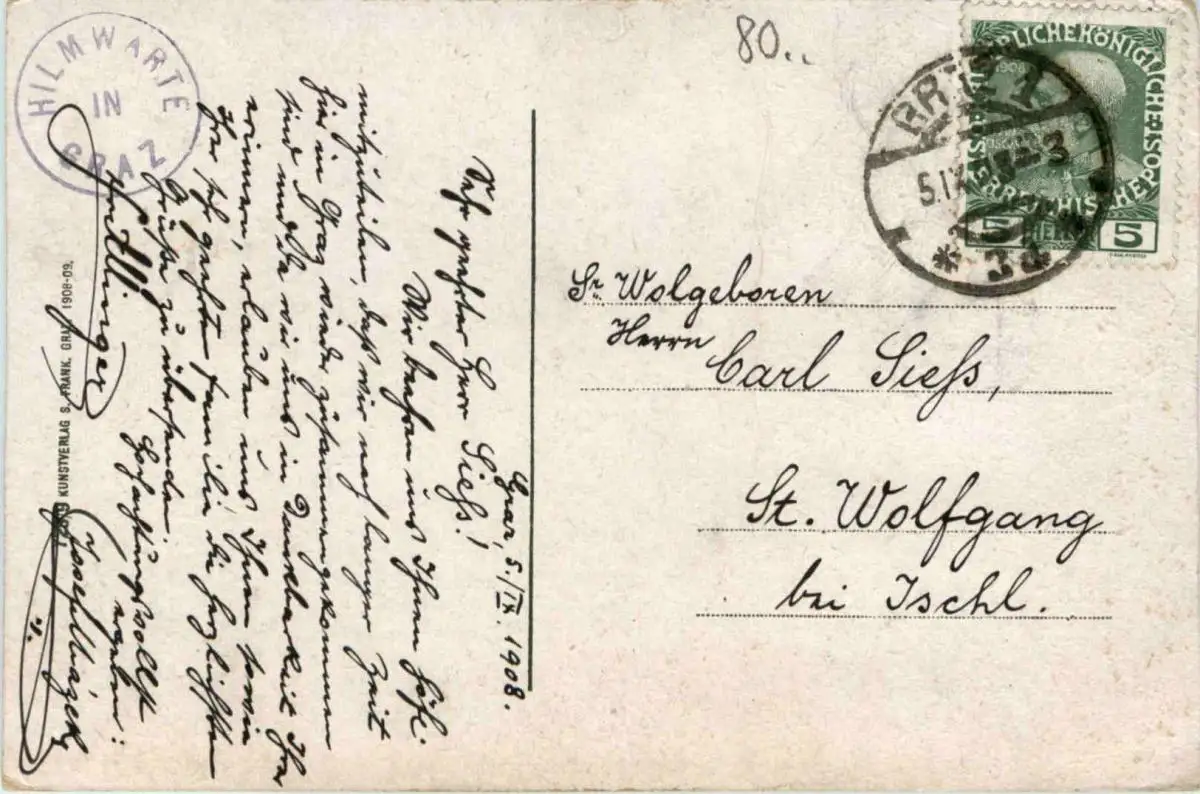 HILMWARTE
IN
GRAZ
80..
KAISERLICHE KÖNIGLICHE
ÖSTERREICHISCHE POST
1908
5 HELLER 5
GRAZ 1
5.IX.
3
* 3d *
Graz, 5./IX. 1908.
Sehr geehrter Herr Siess!
Wir beehren uns Ihnen höfl.
mitzuteilen, daß wir nach langer Zeit
hier in Graz wieder zusammengekommen
sind und da wir uns in Dankbarkeit Ihrer
erinnern, erlauben uns Ihnen sowie
Ihrer sehr geehrten Familie die herzlichsten
Grüße zu übersenden.
Hochachtungsvollst
ergeben:
Josef
KUNSTVERLAG S. FRANK, GRAZ 1908-09.
Sr. Wolgeboren
Herrn
Carl Siess,
St. Wolfgang
bei Ischl.